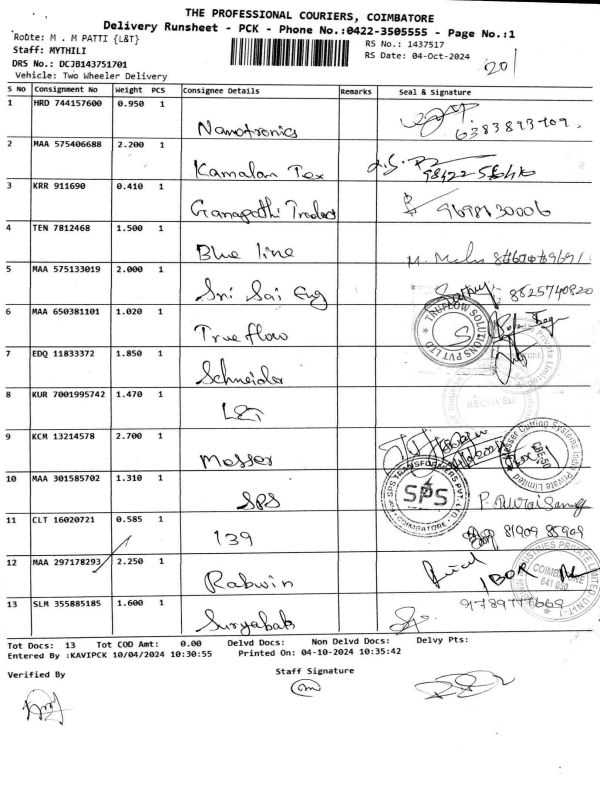 THE PROFESSIONAL COURIERS, COIMBATORE
Delivery Runsheet - PCK - Phone No.:0422-3505555 - Page No.:1
Route: M . M PATTI {L&T}
RS No.: 1437517
Staff: MYTHILI
RS Date: 04-Oct-2024
DRS No.: DCJB143751701
201
Vehicle: Two Wheeler Delivery
S No Consignment No Weight PCS Consignee Details Remarks Seal & Signature
1 HRD 744157600 0.950 1 Nanotronics
2 MAA 575406688 2.200 1 Kamalam Tex
3 KRR 911690 0.410 1 Ganapathi Traders 9698130006
4 TEN 7812468 1.500 1 Blue line
5 MAA 575133019 2.000 1 Sri Sai Eng 8825740820
6 MAA 650381101 1.020 1 True flow
TRUFLOW SOLUTIONS PVT LTD
7 EDQ 11833372 1.850 1 Schneider
8 KUR 7001995742 1.470 1 L&T
RECEIVED
9 KCM 13214578 2.700 1 Messer
Messer Cutting Systems India Private Limited
10 MAA 301585702 1.310 1 SPS
SPS TRANSFORMERS PVT. LTD.
SPS
COIMBATORE
11 CLT 16020721 0.585 1 139 81909 85909
12 MAA 297178293 2.250 1 Rabwin 1 BOX
INDUSTRIES PRIVATE LIMITED
COIMBATORE
13 SLM 355885185 1.600 1 Suryabab
Tot Docs: 13 Tot COD Amt: 0.00 Delvd Docs: Non Delvd Docs: Delvy Pts:
Entered By :KAVIPCK 10/04/2024 10:30:55 Printed On: 04-10-2024 10:35:42
Verified By
Staff Signature